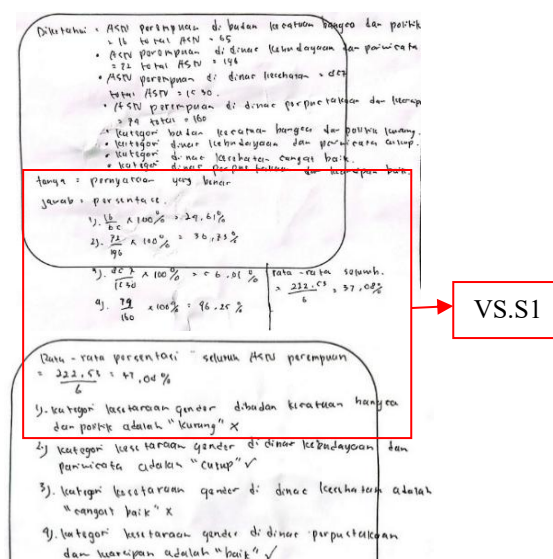 Diketahui : • ASN perempuan di badan kesatuan bangsa dan politik
= 16 total ASN = 65
• ASN perempuan di dinas kebudayaan dan pariwisata
= 72 total ASN = 196
• ASN perempuan di dinas kesehatan = 857
total ASN = 1530.
• ASN perempuan di dinas perpustakaan dan
= 79 total = 160
• kategori badan kesatuan bangsa dan politik kurang.
• kategori dinas kebudayaan dan pariwisata cukup.
• kategori dinas kesehatan sangat baik.
• kategori dinas perpustakaan dan kearsipan baik.
tanya = pernyataan yang benar
jawab : persentase.
1). 16/65 x 100% = 24,61%
2). 72/196 x 100% = 36,73%
3). 857/1530 x 100% = 56,01%
rata-rata seluruh.
= 222,53/6 = 37,08%
4). 79/160 x 100% = 46,25%
VS.S1
Rata-rata persentasi seluruh ASN perempuan
= 222,53/6 = 37,08%
1). kategori kesetaraan gender dibadan kesatuan bangsa
dan politik adalah "kurang" x
2) kategori kesetaraan gender di dinas kebudayaan dan
pariwisata adalah "cukup" ✓
3). kategori kesetaraan gender di dinas kesehatan adalah
"sangat baik" x
4). kategori kesetaraan gender di dinas perpustakaan
dan kearsipan adalah "baik" ✓